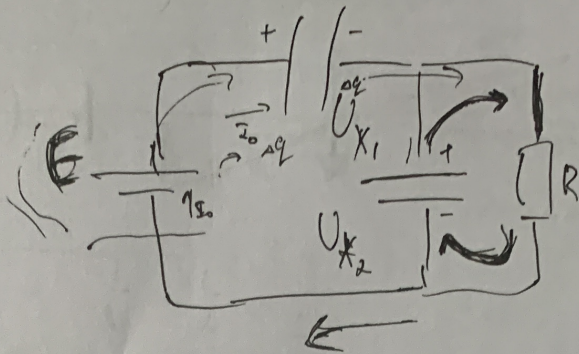 + -
Δq
I₀ Δq
U
K₁
+
R
ε
I₀
U
K₂
-